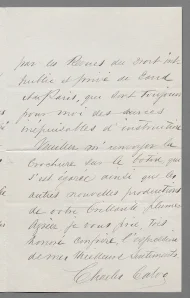 par les Revues du
publie et privé de Gand
et Paris, que sont toujours
pour moi des sources
inépuisables d'instruction
Veuillez m'envoyer la
brochure sur le Votre que
s'est égarée ainsi que les
autres nouvelles productions
de votre brillante plume
agréer je vous prie, très
honoré Confrère, l'expression
de mes meilleurs sentiments
Charles Calvo